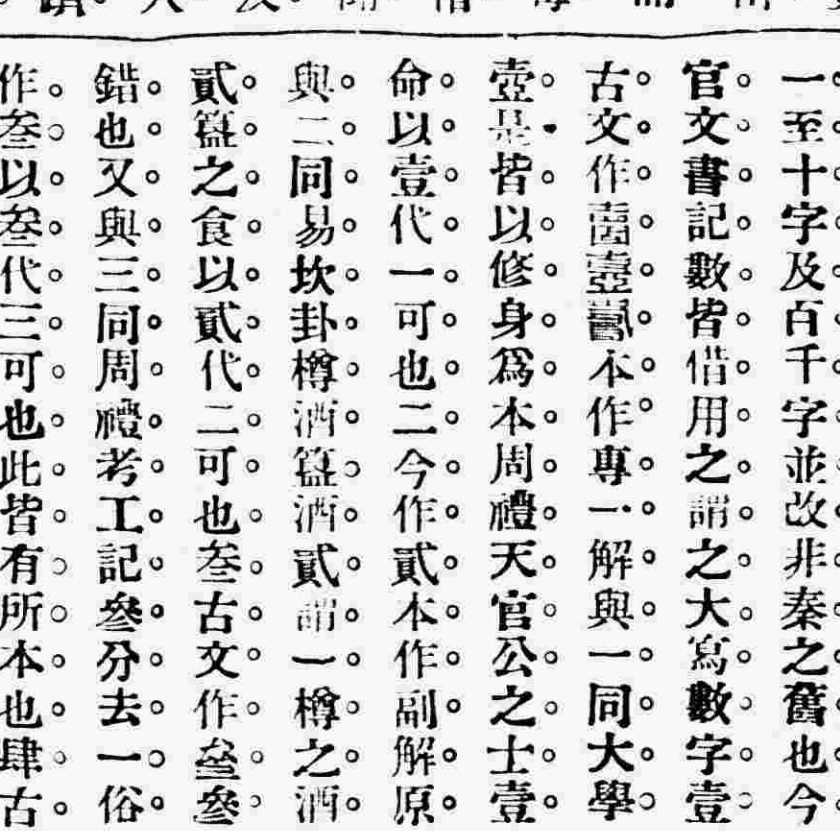 一至十字及百千字並改非秦之舊也今
官文書記數皆借用之謂之大寫數字壹
古文作壹本作專一解與一同大學
壹是皆以修身爲本周禮天官公之士壹
命以壹代一可也二今作貳本作副解原
與二同易坎卦樽酒簋酒貳謂一樽之酒
貳簋之食以貳代二可也叁古文作曑參
錯也又與三同周禮考工記參分去一俗
作叁以叁代三可也此皆有所本也肆古